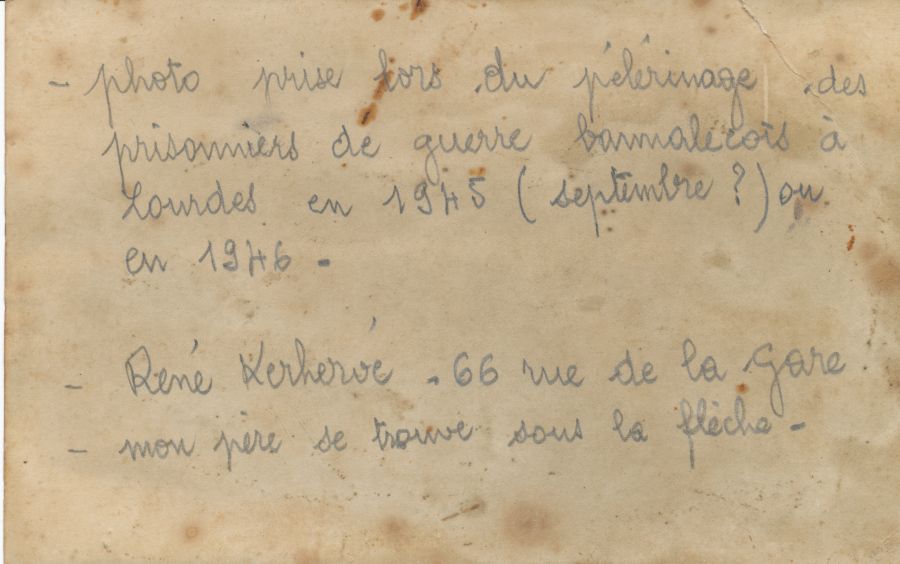 - photo prise lors du pélérinage des
prisonniers de guerre bannalecois à
Lourdes en 1945 ( septembre ? ) ou
en 1946 -
- René Kerhervé . 66 rue de la Gare
- mon père se trouve sous la flèche -